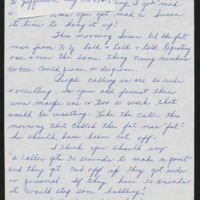 a                 when you get mad a Susan
its time to hang it up!
This morning Susan let the fat
man from N.Y. talk & talk & talk Repeating
over & over the same thing using members
Could prove or disprove.
People calling in are so rude
& insulting. In your old format there
were maybe one or two a week that
would be insulting. Like the caller this
morning that called the fat man "fat"
he should have been cut off.
I think you should say
"a caller gets 30 seconds to make a point"
and they get cut off if they get rude
or personal. If they have 30 seconds
it would stop some "babbling"!